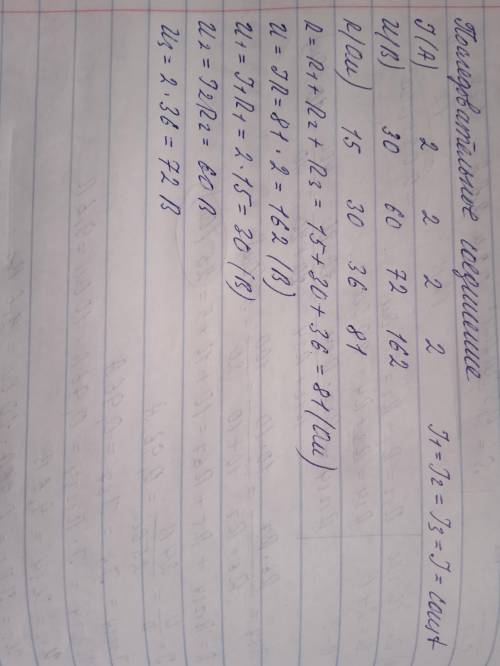 Последовательное соединение
I(A) 2 2 2 2 I1 = I2 = I3 = I = const
U(B) 30 60 72 162
R(Ом) 15 30 36 81
R = R1 + R2 + R3 = 15 + 30 + 36 = 81 (Ом)
U = IR = 81 · 2 = 162 (B)
U1 = I1R1 = 2 · 15 = 30 (B)
U2 = I2R2 = 60 B
U3 = 2 · 36 = 72 B